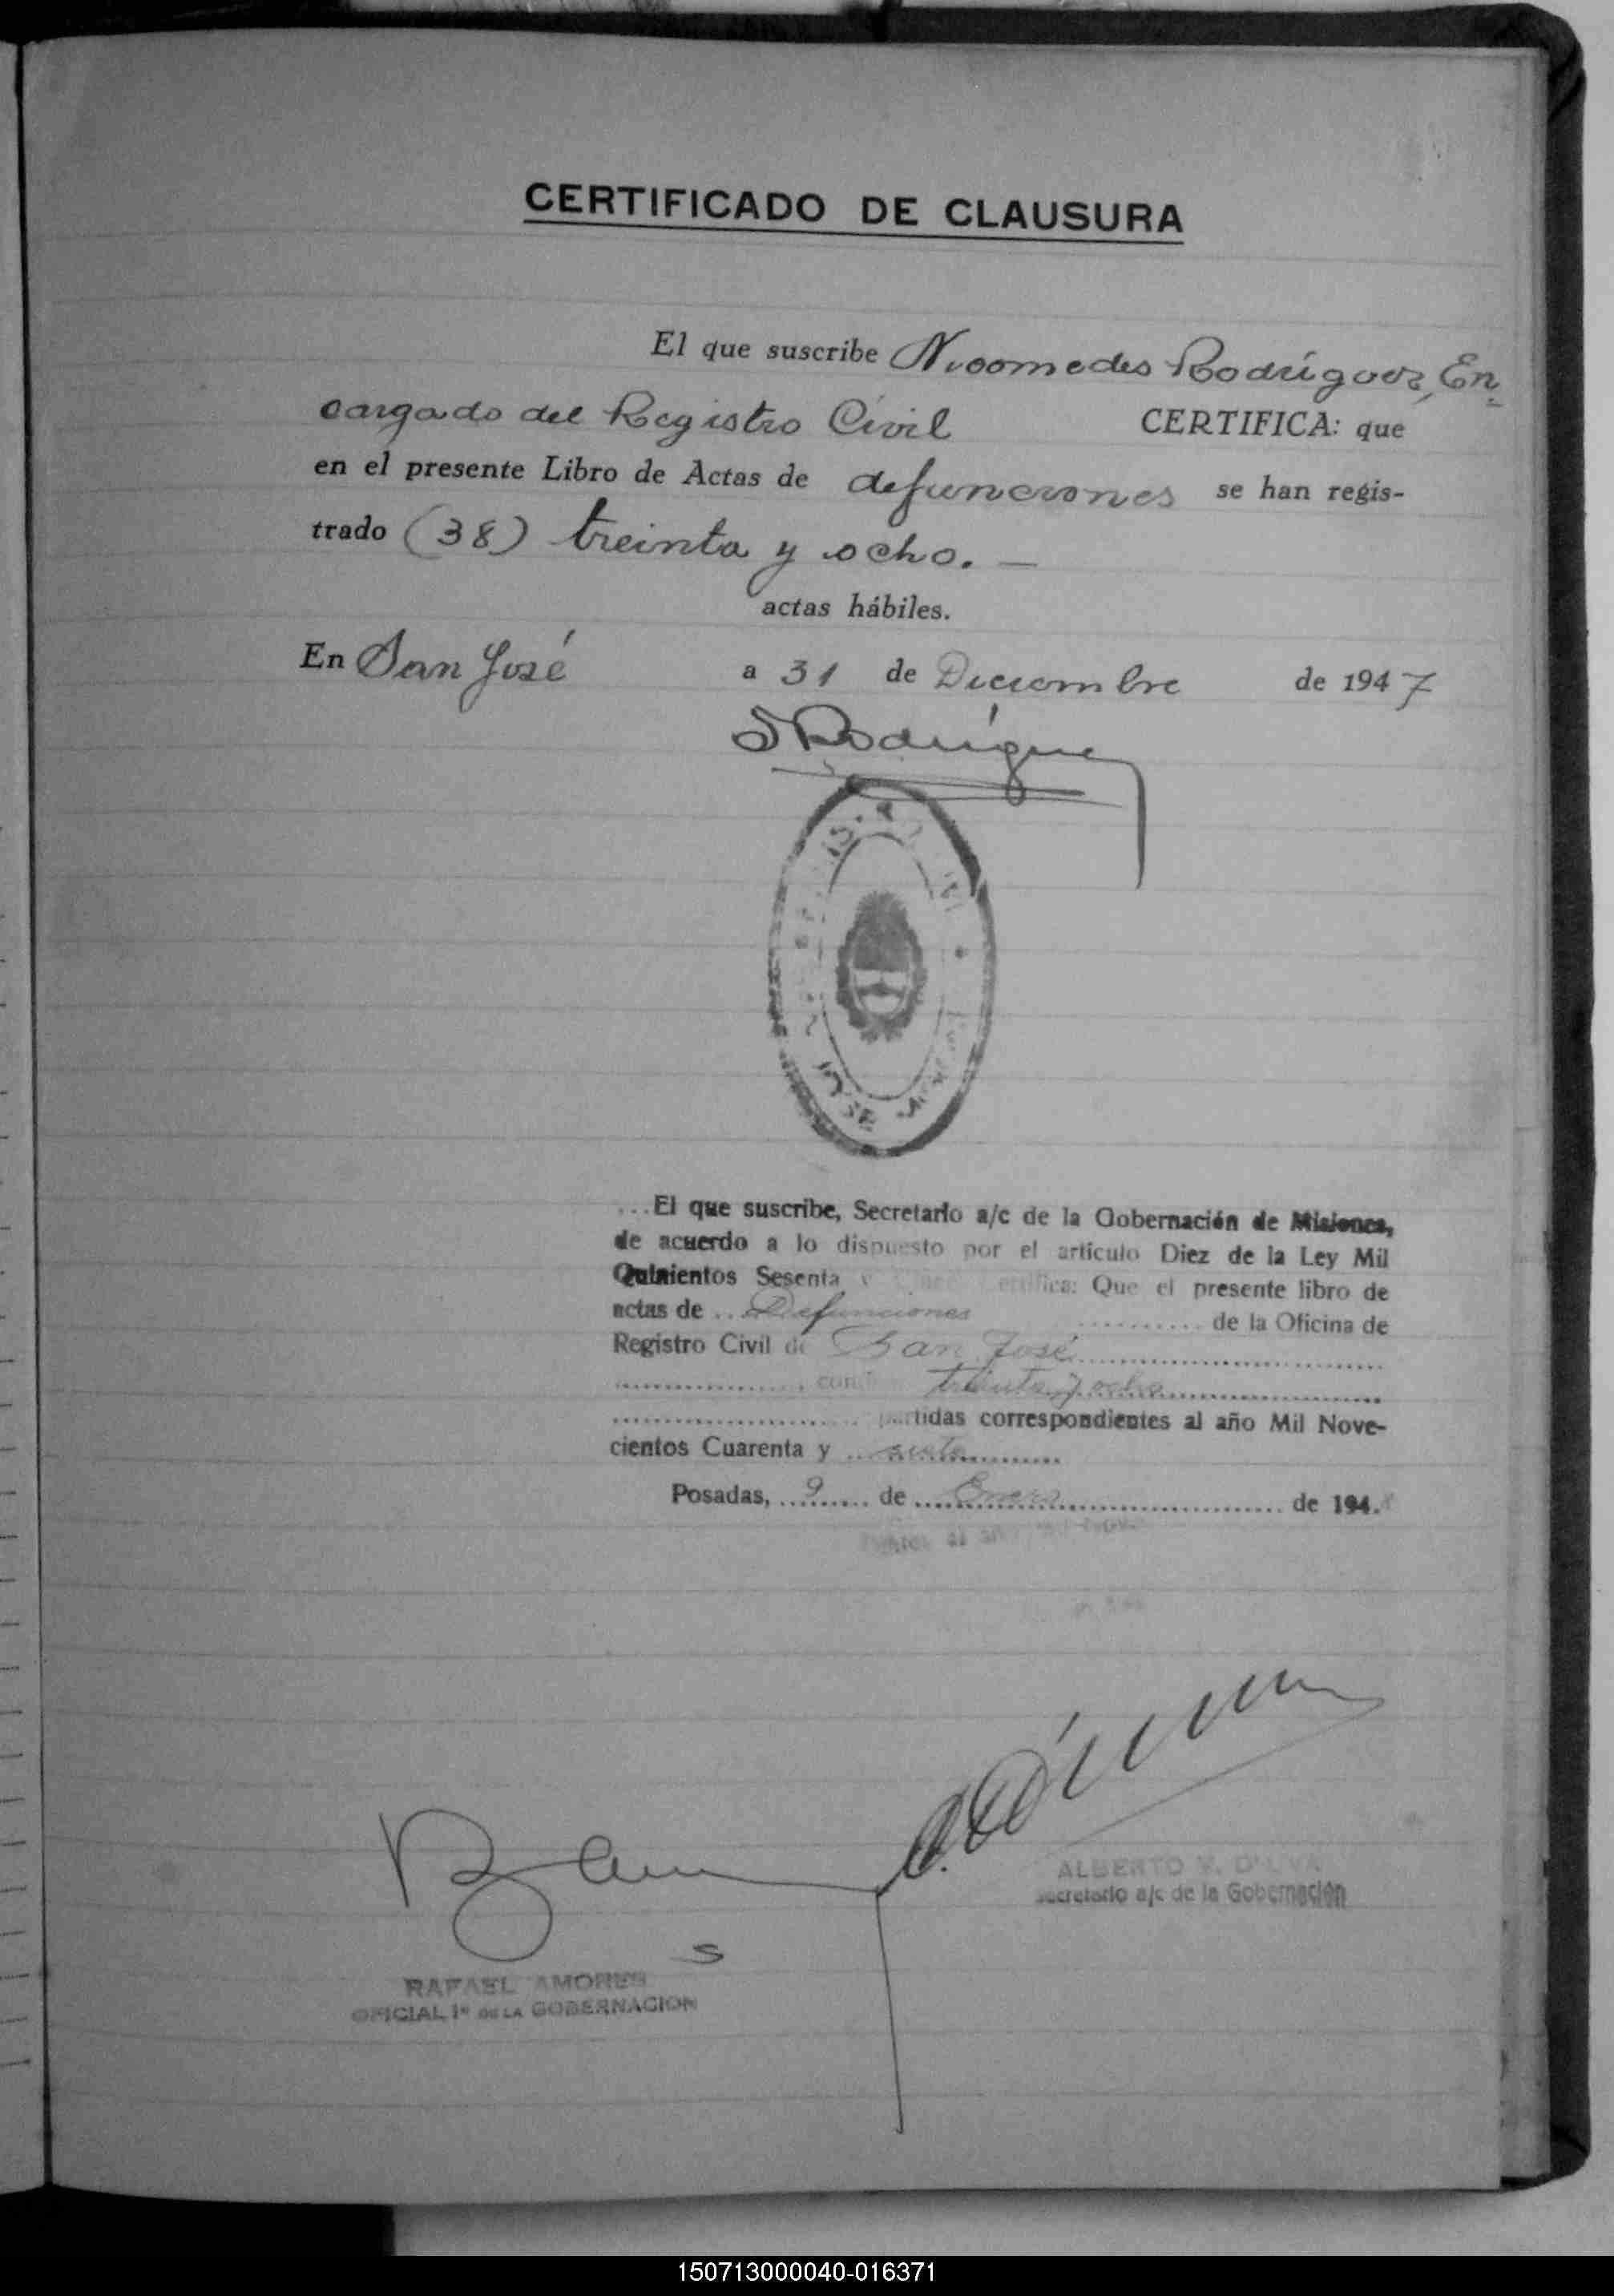 CERTIFICADO DE CLAUSURA
El que suscribe Nicomedes Rodríguez, En-
cargado del Registro Civil CERTIFICA: que
en el presente Libro de Actas de defunciones se han regis-
trado (38) treinta y ocho. —
actas hábiles.
En San José a 31 de Diciembre de 1947
Rodríguez
...El que suscribe, Secretario a/c de la Gobernación de Misiones,
de acuerdo a lo dispuesto por el artículo Diez de la Ley Mil
Quinientos Sesenta y Certifica: Que el presente libro de
actas de .. Defunciones .......... de la Oficina de
Registro Civil de San José
treinta y ocho
partidas correspondientes al año Mil Nove-
cientos Cuarenta y siete
Posadas, 9 de Enero de 194.8
RAFAEL AMORES
OFICIAL 1º DE LA GOBERNACION
ALBERTO V.
Secretario a/c de la Gobernación
150713000040-016371